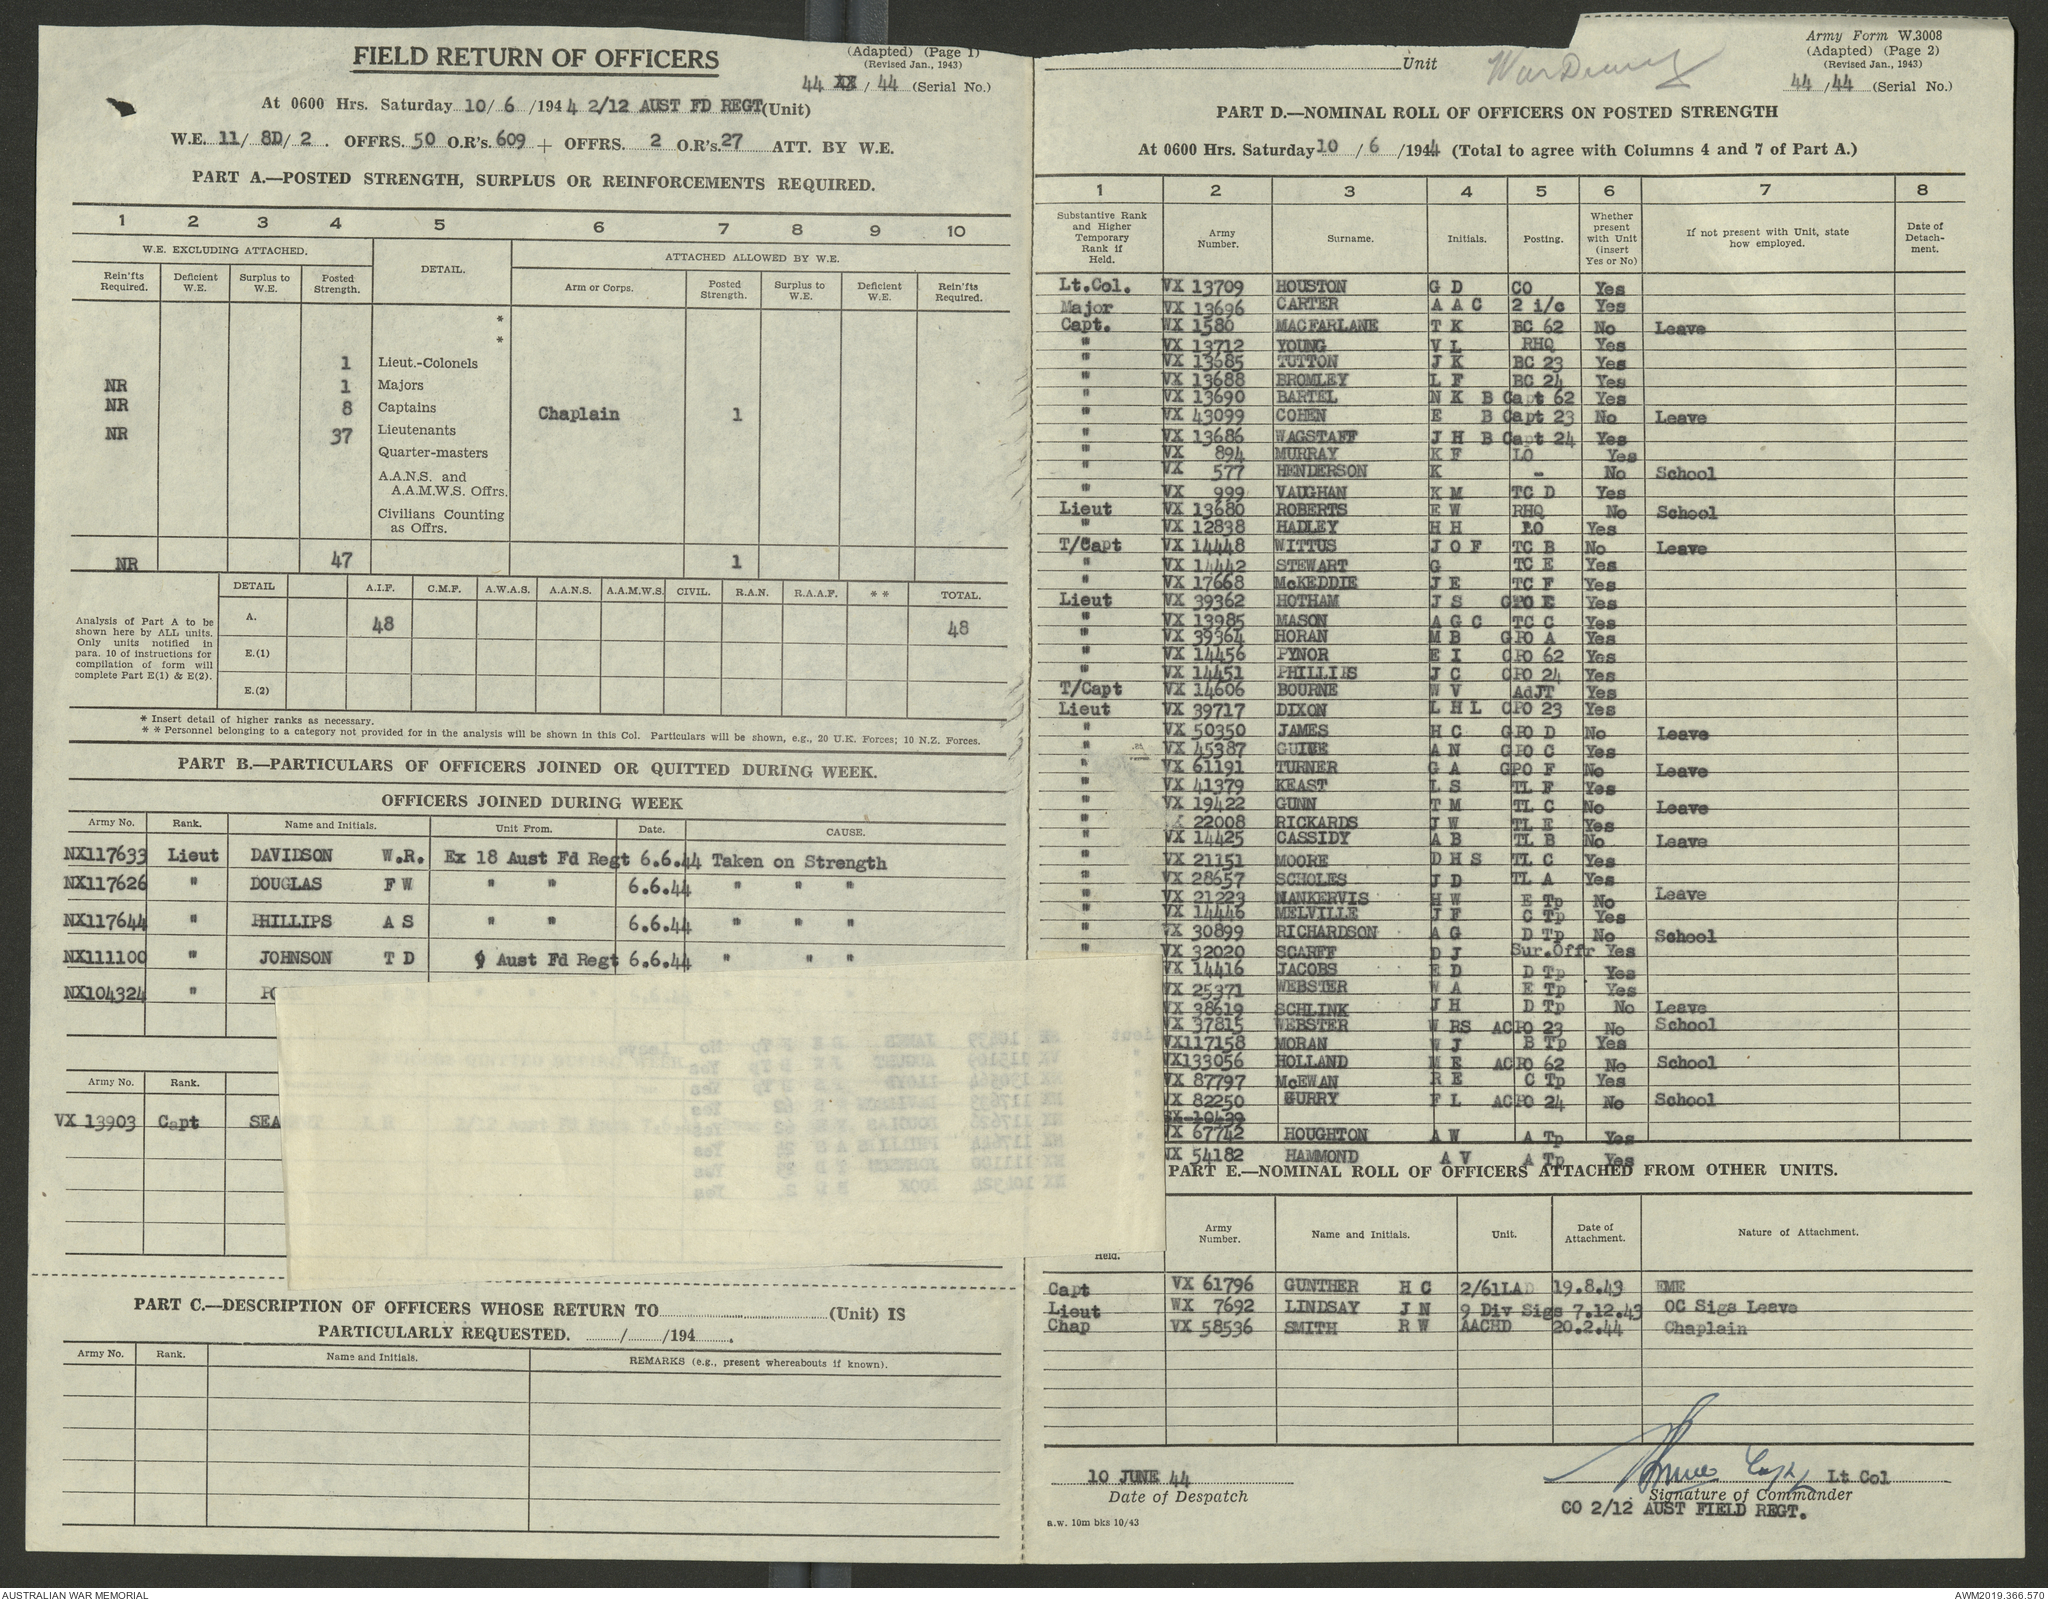 FIELD RETURN OF OFFICERS
(Adapted) (Page 1)
(Revised Jan., 1943)
44 / 44 (Serial No.)
At 0600 Hrs. Saturday 10/ 6 /1944 2/12 AUST FD REGT (Unit)
W.E. 11/ 8D/ 2 . OFFRS. 50 O.R's. 609 + OFFRS. 2 O.R's. 27 ATT. BY W.E.
PART A.—POSTED STRENGTH, SURPLUS OR REINFORCEMENTS REQUIRED.
1 2 3 4 5 6 7 8 9 10
W.E. EXCLUDING ATTACHED. DETAIL. ATTACHED ALLOWED BY W.E.
Rein'fts Required. Deficient W.E. Surplus to W.E. Posted Strength. Arm or Corps. Posted Strength. Surplus to W.E. Deficient W.E. Rein'fts Required.
*
*
1 Lieut.-Colonels
NR 1 Majors
NR 8 Captains Chaplain 1
NR 37 Lieutenants
Quarter-masters
A.A.N.S. and
A.A.M.W.S. Offrs.
Civilians Counting
as Offrs.
NR 47 1
Analysis of Part A to be shown here by ALL units. Only units notified in para. 10 of instructions for compilation of form will complete Part E(1) & E(2).
DETAIL A.I.F. C.M.F. A.W.A.S. A.A.N.S. A.A.M.W.S. CIVIL. R.A.N. R.A.A.F. * * TOTAL.
A. 48 48
E.(1)
E.(2)
* Insert detail of higher ranks as necessary.
* * Personnel belonging to a category not provided for in the analysis will be shown in this Col. Particulars will be shown, e.g., 20 U.K. Forces; 10 N.Z. Forces.
PART B.—PARTICULARS OF OFFICERS JOINED OR QUITTED DURING WEEK.
OFFICERS JOINED DURING WEEK
Army No. Rank. Name and Initials. Unit From. Date. CAUSE.
NX117633 Lieut DAVIDSON W.R. Ex 18 Aust Fd Regt 6.6.44 Taken on Strength
NX117626 " DOUGLAS F W " " 6.6.44 " " "
NX117644 " PHILLIPS A S " " 6.6.44 " " "
NX111100 " JOHNSON T D 9 Aust Fd Regt 6.6.44 " " "
NX104324 "
Army No. Rank.
VX 13903 Capt SEA
PART C.—DESCRIPTION OF OFFICERS WHOSE RETURN TO (Unit) IS
PARTICULARLY REQUESTED. / /194 .
Army No. Rank. Name and Initials. REMARKS (e.g., present whereabouts if known).
Unit
Army Form W.3008
(Adapted) (Page 2)
(Revised Jan., 1943)
44 /44 (Serial No.)
PART D.—NOMINAL ROLL OF OFFICERS ON POSTED STRENGTH
At 0600 Hrs. Saturday 10 / 6 /1944 (Total to agree with Columns 4 and 7 of Part A.)
1 2 3 4 5 6 7 8
Substantive Rank and Higher Temporary Rank if Held. Army Number. Surname. Initials. Posting. Whether present with Unit (insert Yes or No) If not present with Unit, state how employed. Date of Detach-ment.
Lt.Col. VX 13709 HOUSTON G D CO Yes
Major VX 13696 CARTER A A C 2 i/c Yes
Capt. WX 1580 MACFARLANE T K BC 62 No Leave
" VX 13712 YOUNG V L RHQ Yes
" VX 13685 TUTTON J K BC 23 Yes
" VX 13688 BROMLEY L F BC 24 Yes
" VX 13690 BARTEL N K B Capt 62 Yes
" VX 43099 COHEN E B Capt 23 No Leave
" VX 13686 WAGSTAFF J H B Capt 24 Yes
" VX 894 MURRAY K F LO Yes
" VX 577 HENDERSON K - No School
" VX 999 VAUGHAN K M TC D Yes
Lieut VX 13680 ROBERTS E W RHQ No School
" VX 12838 HADLEY H H LO Yes
T/Capt VX 14448 WITTUS J O F TC B No Leave
" VX 14442 STEWART G TC E Yes
" VX 17668 McKEDDIE J E TC F Yes
Lieut VX 39362 HOTHAM J S GPO E Yes
" VX 13985 MASON A G C TC C Yes
" VX 39364 HORAN M B GPO A Yes
" VX 14456 PYNOR E I CPO 62 Yes
" VX 14451 PHILLIPS J C CPO 24 Yes
T/Capt VX 14606 BOURNE W V AdJT Yes
Lieut VX 39717 DIXON L H L CPO 23 Yes
" VX 50350 JAMES H C GPO D No Leave
" VX 45387 A N GPO C Yes
" VX 61191 TURNER G A GPO F No Leave
" VX 41379 KEAST L S TL F Yes
" VX 19422 GUNN T M TL C No Leave
" VX 22008 RICKARDS J W TL E Yes
" VX 14425 CASSIDY A B TL B No Leave
" VX 21151 MOORE D H S TL C Yes
" VX 28657 SCHOLES J D TL A Yes
" VX 21223 MANKERVIS H W E Tp No Leave
" VX 14446 MELVILLE J F C Tp Yes
" VX 30899 RICHARDSON A G D Tp No School
" VX 32020 SCARFF D J Sur.Offr Yes
VX 14416 JACOBS E D D Tp Yes
VX 25371 WEBSTER W A E Tp Yes
VX 38619 SCHLINK J H D Tp No Leave
VX 37815 WEBSTER W RS ACPO 23 No School
VX117158 MORAN W J B Tp Yes
VX133056 HOLLAND M E ACPO 62 No School
VX 87797 McEWAN R E C Tp Yes
VX 82250 GURRY F L ACPO 24 No School
SX 10439
VX 67742 HOUGHTON A W A Tp Yes
NX 54182 HAMMOND A V A Tp Yes
PART E.—NOMINAL ROLL OF OFFICERS ATTACHED FROM OTHER UNITS.
Held. Army Number. Name and Initials. Unit. Date of Attachment. Nature of Attachment.
Capt VX 61796 GUNTHER H C 2/61LAD 19.8.43 EME
Lieut WX 7692 LINDSAY J N 9 Div Sigs 7.12.43 OC Sigs Leave
Chap VX 58536 SMITH R W AACHD 20.2.44 Chaplain
10 JUNE 44
Date of Despatch
Lt Col
Signature of Commander
CO 2/12 AUST FIELD REGT.
a.w. 10m bks 10/43
AUSTRALIAN WAR MEMORIAL
AWM2019.366.570